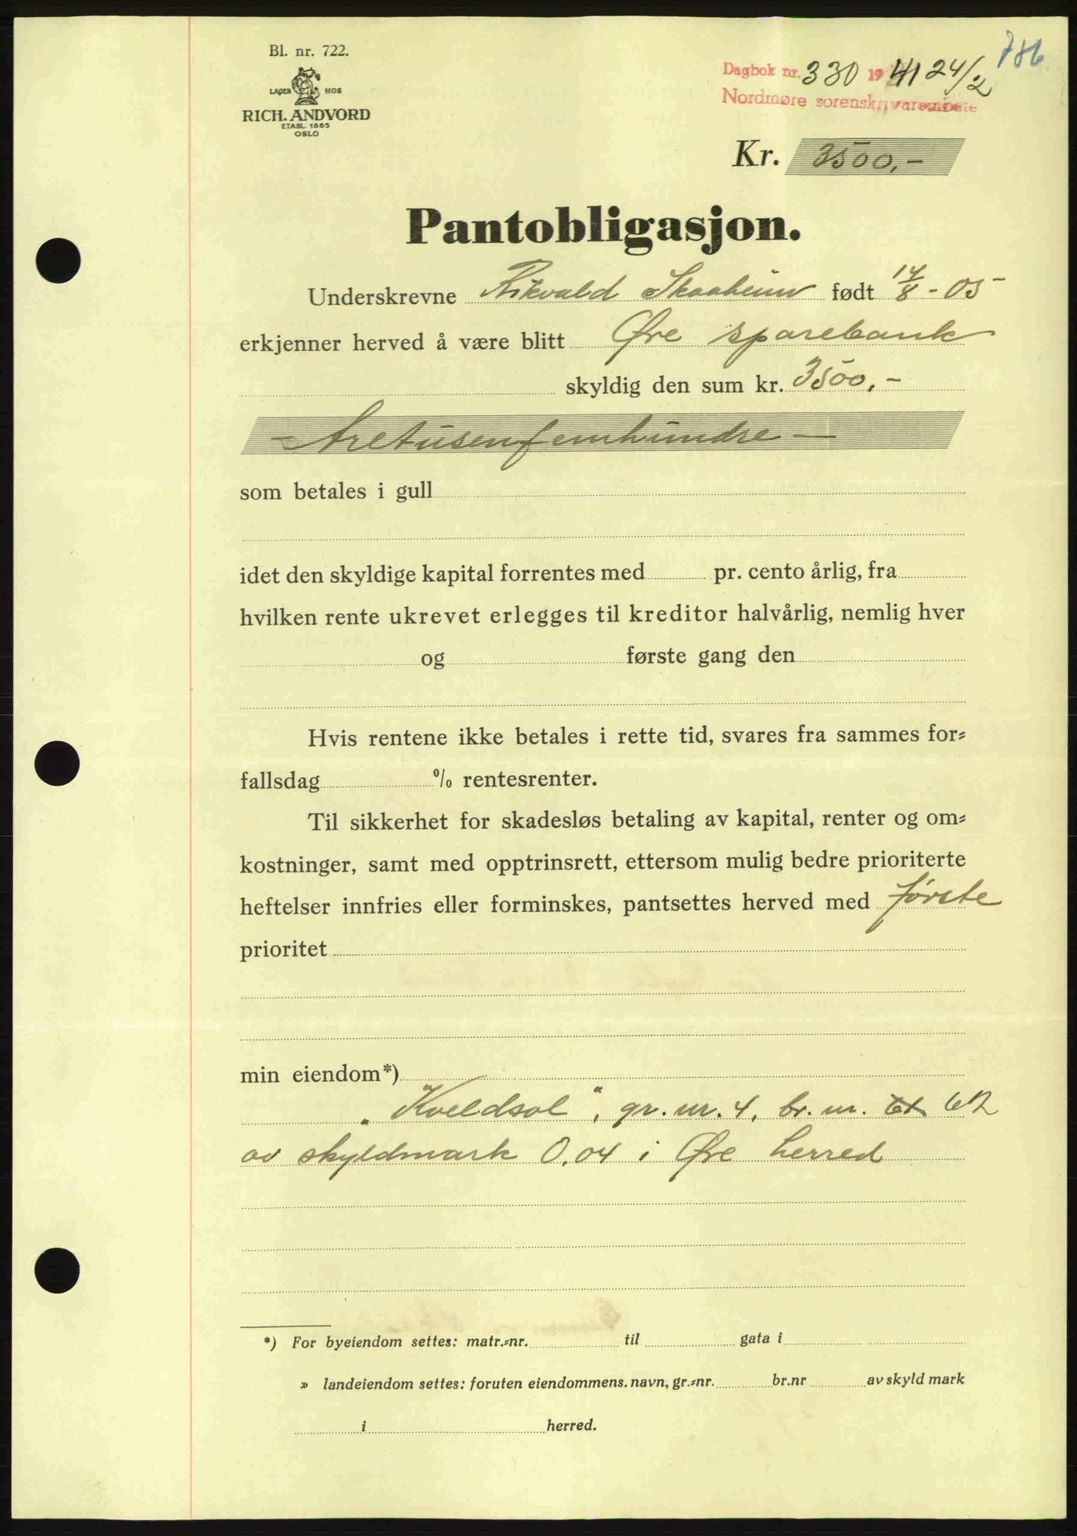 786
Bl. nr. 722.
LAGER HOS
RICH. ANDVORD
ETABL 1865
OSLO
Dagbok nr. 330 1941 24/2
Nordmøre sorenskriverembete
Kr. 3500,-
Pantobligasjon.
Underskrevne Rikvald Skaaheim født 14/8 - 05
erkjenner herved å være blitt Øre sparebank
skyldig den sum kr. 3500,-
- tretusenfemhundre -
som betales i gull
idet den skyldige kapital forrentes med pr. cento årlig, fra
hvilken rente ukrevet erlegges til kreditor halvårlig, nemlig hver
og første gang den
Hvis rentene ikke betales i rette tid, svares fra sammes for=
fallsdag % rentesrenter.
Til sikkerhet for skadesløs betaling av kapital, renter og om=
kostninger, samt med opptrinsrett, ettersom mulig bedre prioriterte
heftelser innfries eller forminskes, pantsettes herved med første
prioritet
min eiendom*)
„Kveldsol", gr. nr. 4, br. nr. 61 62
av skyldmark 0.04 i Øre herred
*) For byeiendom settes: matr.=nr. til gata i
» landeiendom settes: foruten eiendommens. navn, gr.=nr. br.nr av skyld mark
i herred.